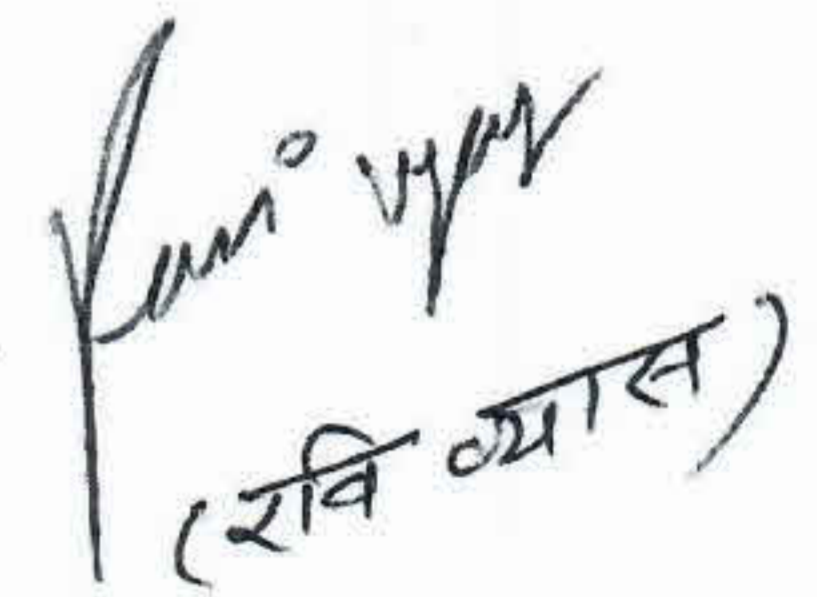 Ravi Vyas
(रवि व्यास)